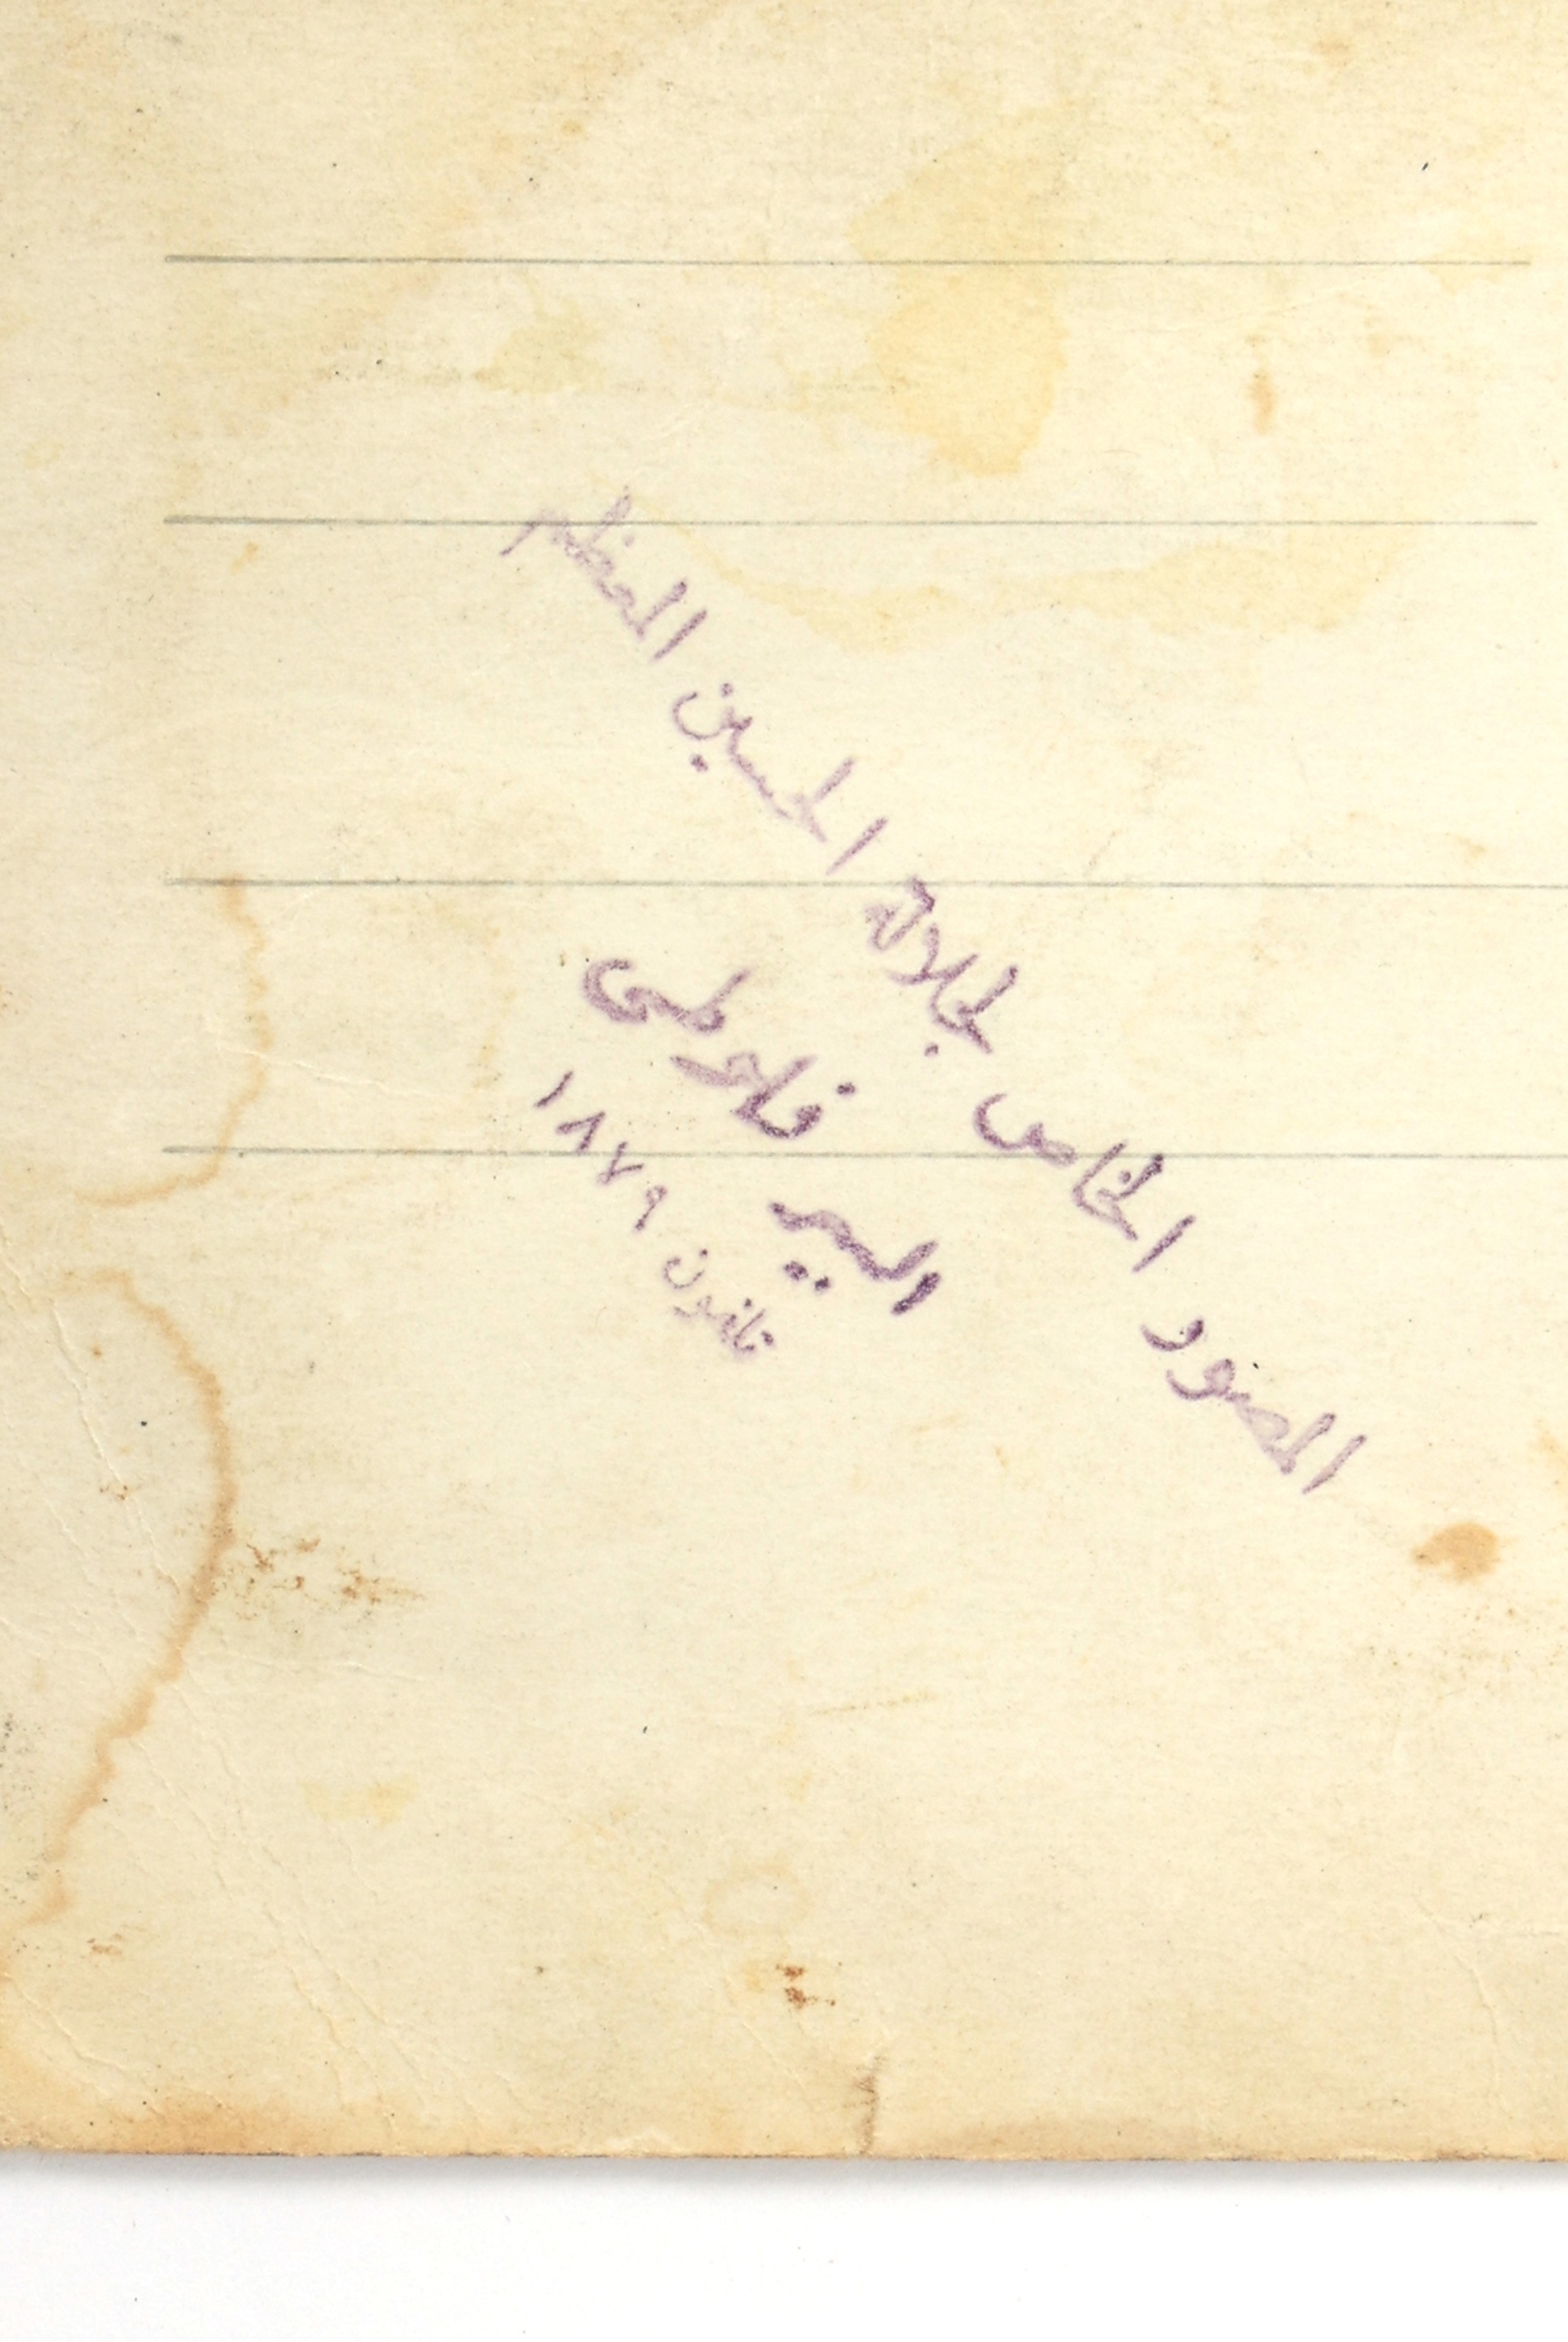 المصور الخاص لجلالة الحسين المعظم
البير فلاديمير
تلفون ١٨٧٩